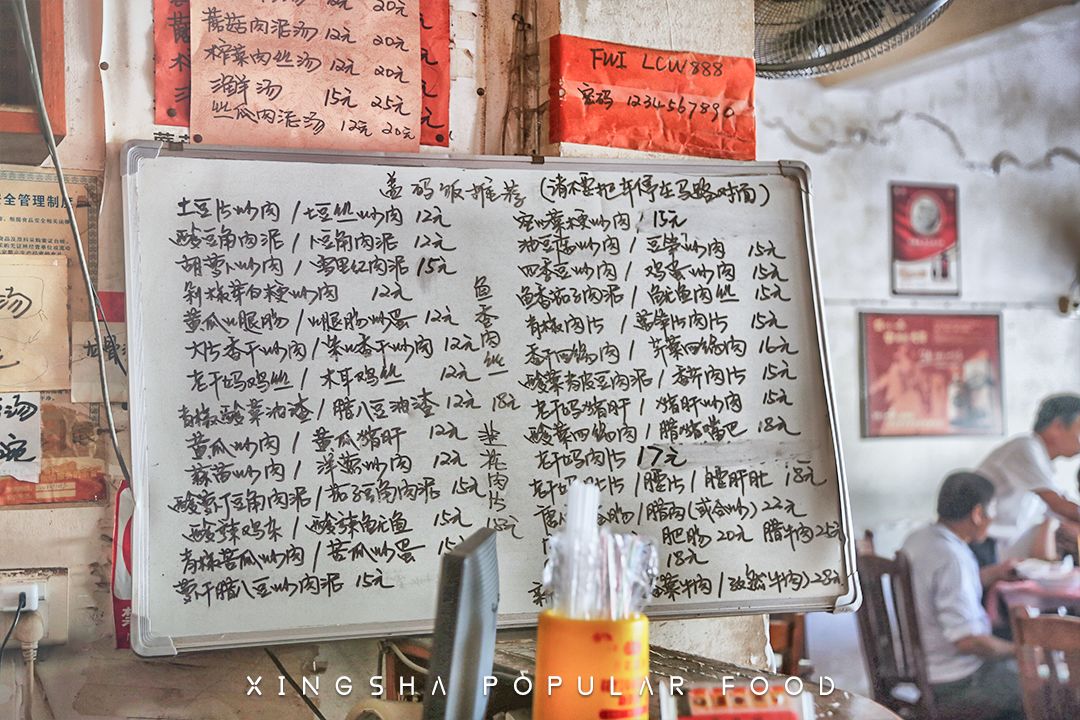 蘑菇肉泥汤 12元 20元
榨菜肉丝汤 12元 20元
海洋汤 15元 25元
丝瓜肉泥汤 12元 20元
FWI LCW888
密码 1234567890
安全管理制度
汤
盖码饭推荐 (请不要把车停在马路对面)
土豆片炒肉 / 土豆丝炒肉 12元
酸豆角肉泥 / 卜豆角肉泥 12元
胡萝卜炒肉 / 雪里红肉泥 15元
剁椒芽白梗炒肉 12元
黄瓜火腿肠 / 火腿肠炒蛋 12元
大片香干炒肉 / 攸县香干炒肉 12元
老干妈鸡丝 / 木耳鸡丝 12元
青椒酸菜油渣 / 腊八豆油渣 12元
黄瓜炒肉 / 黄瓜猪肝 12元
蒜苗炒肉 / 洋葱炒肉 12元
酸萝卜豆角肉泥 / 茄子豆角肉泥 15元
酸辣鸡杂 / 酸辣鱿鱼 15元
青椒苦瓜炒肉 / 苦瓜炒蛋 15元
萝干腊八豆炒肉泥 15元
鱼香肉丝 18元
韭花肉片 18元
空心菜梗炒肉 15元
油豆腐炒肉 / 豆笋炒肉 15元
四季豆炒肉 / 鸡蛋炒肉 15元
鱼香茄子肉泥 / 鱿鱼肉丝 15元
青椒肉片 / 莴笋片肉片 15元
香干回锅肉 / 芹菜回锅肉 16元
酸菜青皮豆肉泥 / 香芹肉片 15元
老干妈猪肝 / 猪肝炒肉 15元
酸菜回锅肉 / 腊猪嘴巴 18元
老干妈肉片 17元
老干妈 / 腰片 / 腰肝肚 18元
肠 / 腊肉(或合炒) 22元
肥肠 20元 腊牛肉 25元
18元
菜牛肉 / 孜然牛肉) 28元
XINGSHA POPULAR FOOD